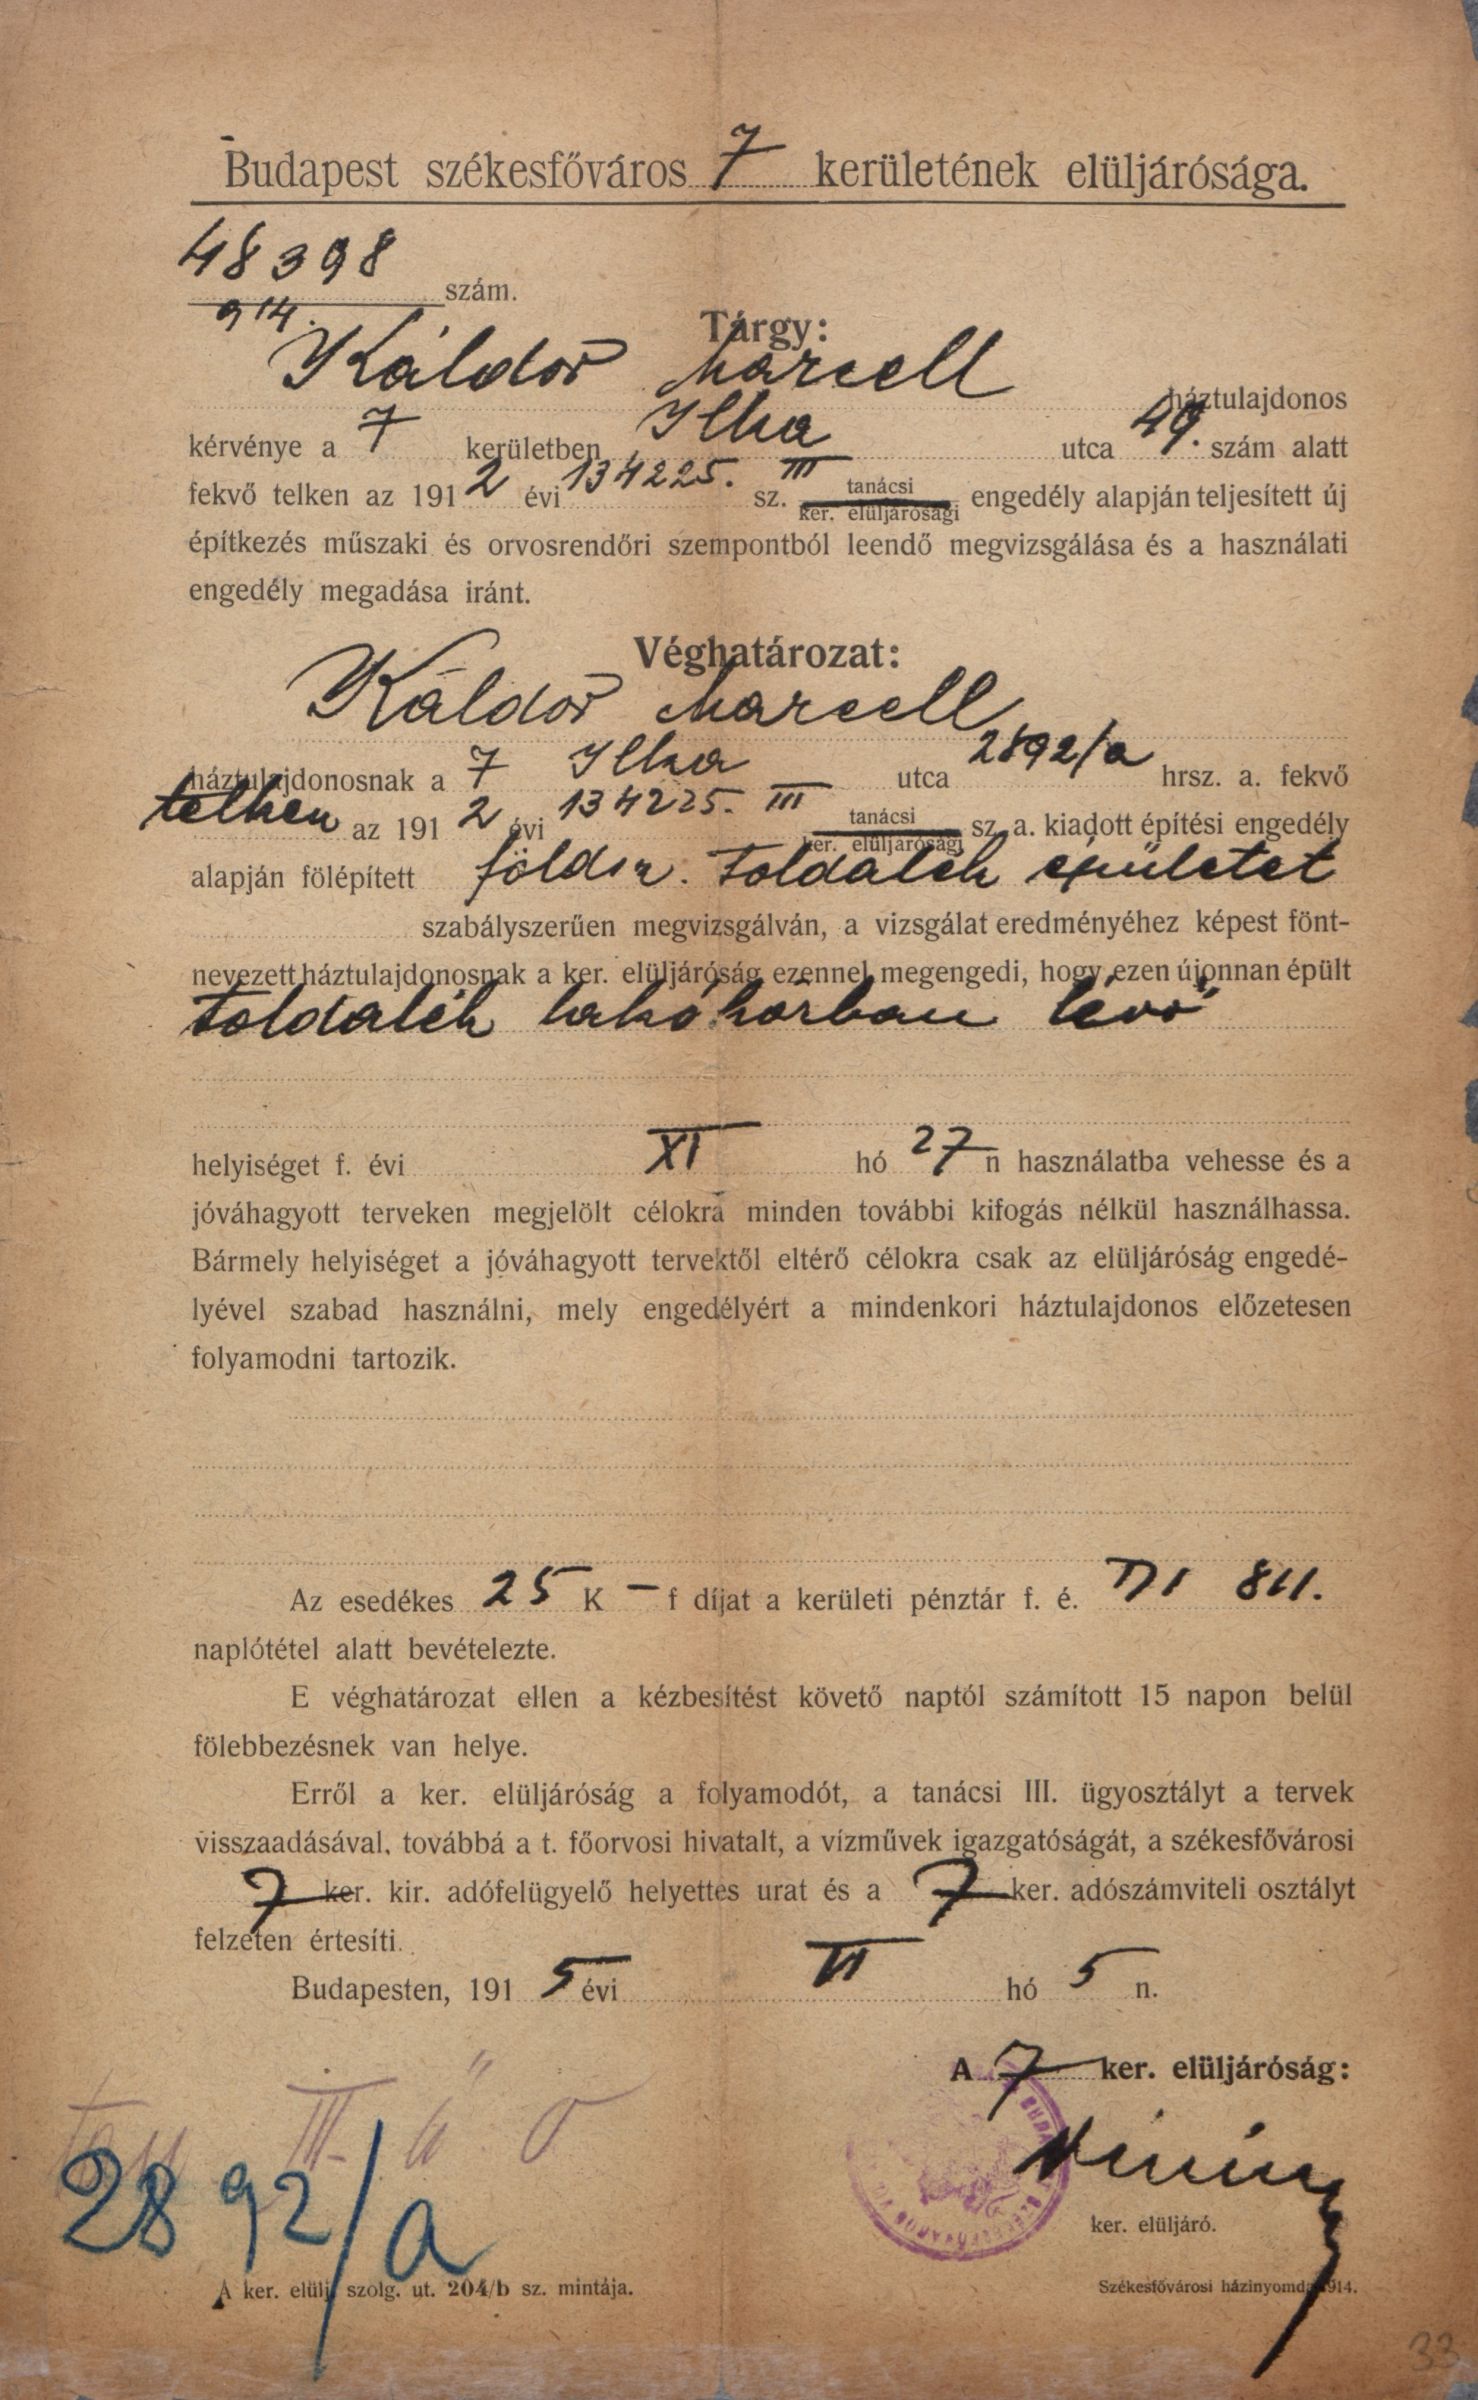 Budapest székesfőváros 7 kerületének elüljárósága.
48398
szám.
914.
Tárgy:
Káldor Marcell háztulajdonos
kérvénye a 7 kerületben Ilka utca 49. szám alatt
fekvő telken az 1912 évi 134225. III sz. tanácsi ker. elüljárósági engedély alapján teljesített új
építkezés műszaki és orvosrendőri szempontból leendő megvizsgálása és a használati
engedély megadása iránt.
Véghatározat:
Káldor Marcell
háztulajdonosnak a 7 Ilka utca 2892/a hrsz. a. fekvő
telken az 1912 évi 134225. III tanácsi ker. elüljárósági sz. a. kiadott építési engedély
alapján fölépített földsz. toldalék épületet
szabályszerűen megvizsgálván, a vizsgálat eredményéhez képest fönt-
nevezett háztulajdonosnak a ker. elüljáróság ezennel megengedi, hogy ezen újonnan épült
toldalék lakóházban lévő
helyiséget f. évi XI hó 27 n használatba vehesse és a
jóváhagyott terveken megjelölt célokra minden további kifogás nélkül használhassa.
Bármely helyiséget a jóváhagyott tervektől eltérő célokra csak az elüljáróság engedé-
lyével szabad használni, mely engedélyért a mindenkori háztulajdonos előzetesen
folyamodni tartozik.
Az esedékes 25 K — f díjat a kerületi pénztár f. é. 811.
naplótétel alatt bevételezte.
E véghatározat ellen a kézbesítést követő naptól számított 15 napon belül
fölebbezésnek van helye.
Erről a ker. elüljáróság a folyamodót, a tanácsi III. ügyosztályt a tervek
visszaadásával, továbbá a t. főorvosi hivatalt, a vízművek igazgatóságát, a székesfővárosi
7 ker. kir. adófelügyelő helyettes urat és a 7 ker. adószámviteli osztályt
felzeten értesíti.
Budapesten, 1915 évi VI hó 5 n.
A 7 ker. elüljáróság:
2892/a
ker. elüljáró.
A ker. elülj. szolg. ut. 204/b sz. mintája.
Székesfővárosi házinyomda 1914.
33